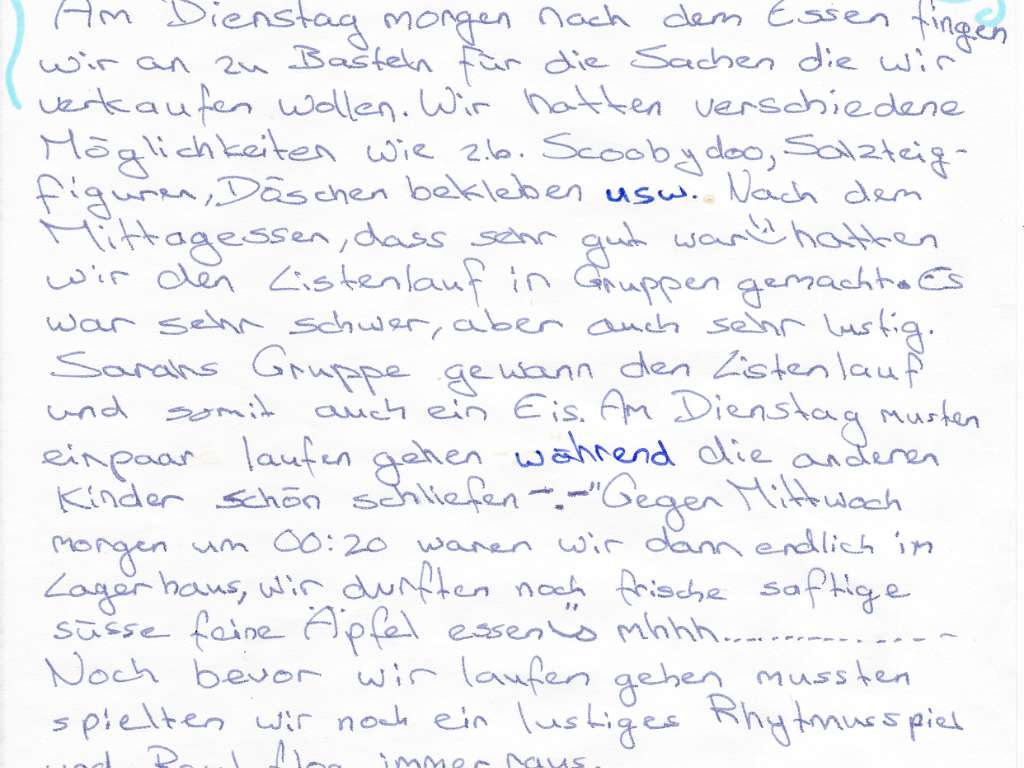 Am Dienstag morgen nach dem Essen fingen
wir an zu Basteln für die Sachen die wir
verkaufen wollen. Wir hatten verschiedene
Möglichkeiten wie z.b. Scoobydoo, Salzteig-
figuren, Döschen bekleben usw. Nach dem
Mittagessen, dass sehr gut war hatten
wir den Listenlauf in Gruppen gemacht. Es
war sehr schwer, aber auch sehr lustig.
Sarahs Gruppe gewann den Listenlauf
und somit auch ein Eis. Am Dienstag musten
einpaar laufen gehen während die anderen
Kinder schön schliefen -.-" Gegen Mittwoch
morgen um 00:20 waren wir dann endlich im
Lagerhaus, wir durften noch frische saftige
süsse feine Äpfel essen mhhh..............
Noch bevor wir laufen gehen mussten
spielten wir noch ein lustiges Rhytmusspiel
und flog immer raus.